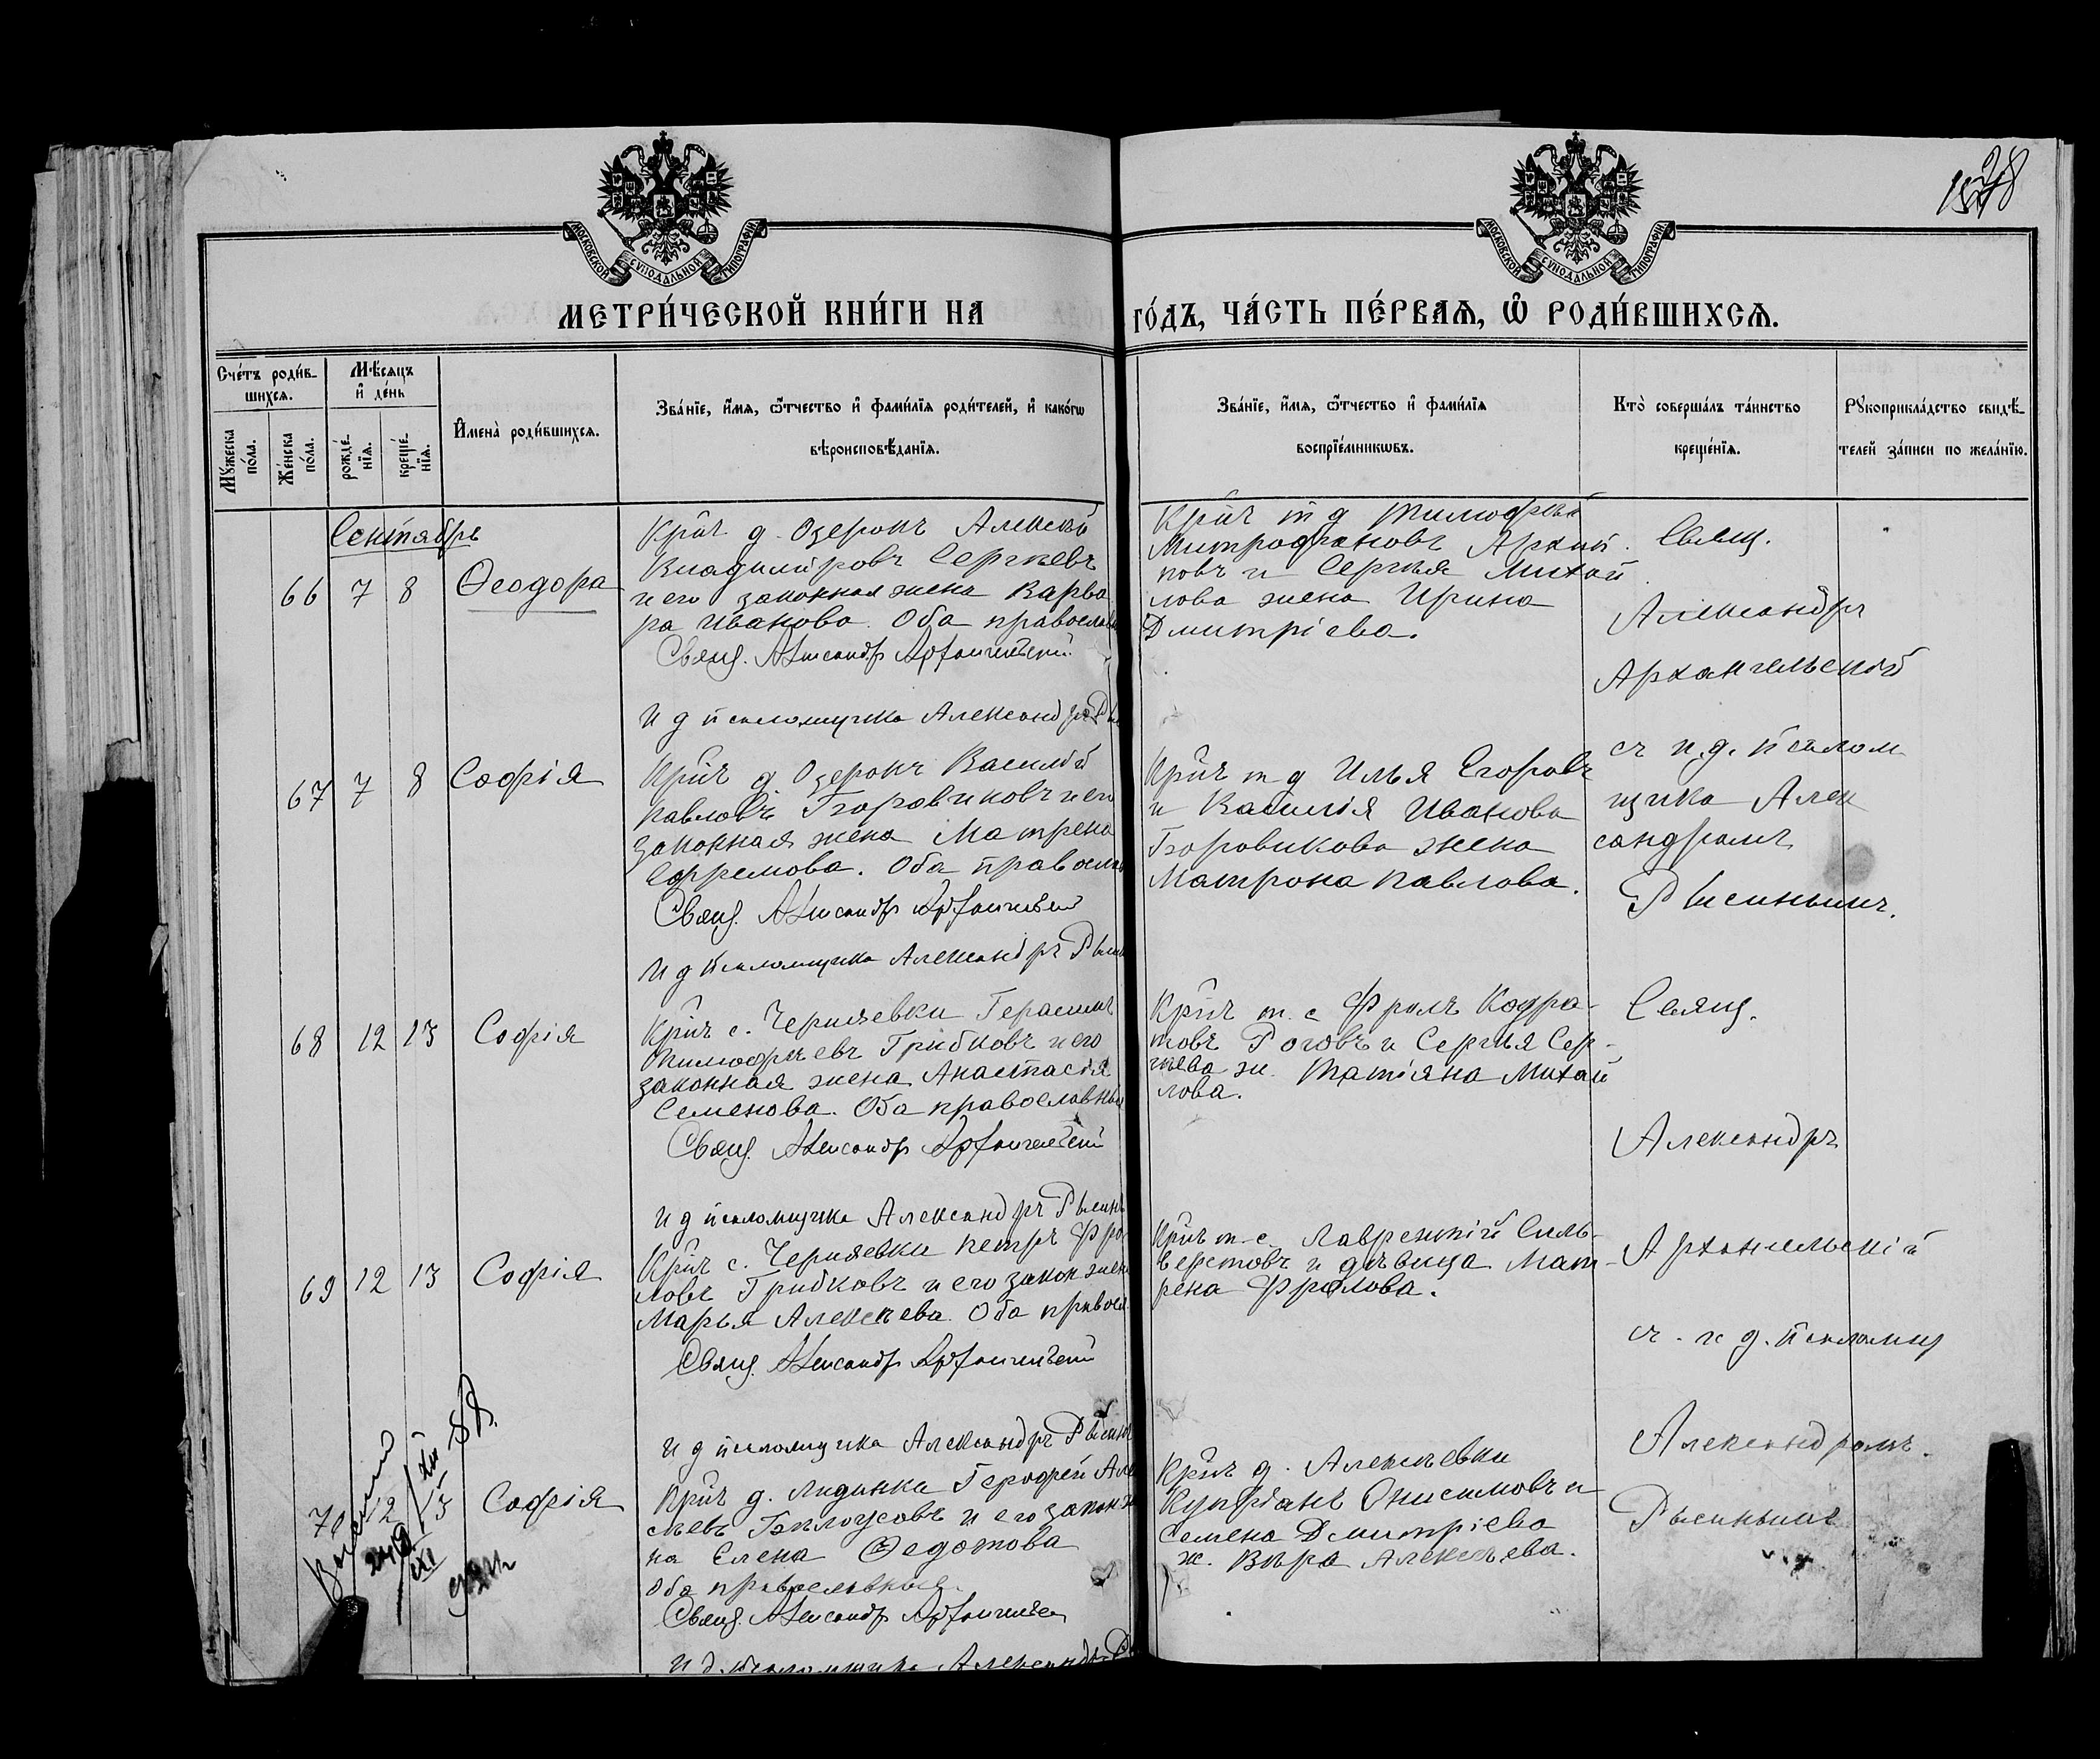 158
МОСКОВСКОЙ СѴНОДАЛЬНОЙ ТИПОГРАФІИ
МОСКОВСКОЙ СѴНОДАЛЬНОЙ ТИПОГРАФІИ
МЕТРИ́ЧЕСКОЙ КНИ́ГИ НА
ГО́ДЪ, ЧА́СТЬ ПЕ́РВАѦ, Ѡ҆ РОДИ́ВШИХСѦ.
Сче́тъ роди́в-
шихсѧ.
Мꙋ́жеска
по́ла.
Же́нска
по́ла.
Мѣ́сѧцъ
и҆ де́нь
рожде́-
нїѧ.
креще́-
нїѧ.
И҆мена̀ роди́вшихсѧ.
Зва́нїе, и҆́мѧ, ѻ҆́тчество и҆ фами́лїѧ роди́телей, и҆ како́гѡ
вѣроисповѣ́данїѧ.
Зва́нїе, и҆́мѧ, ѻ҆́тчество и҆ фами́лїѧ
воспрїе́мникѡвъ.
Кто̀ соверша́лъ та́инство
креще́нїѧ.
Рꙋкоприкла́дство свидѣ́-
телей за́писи по жела́нїю.
Сентябрь
66 7 8 Ѳеодора
Кр̃нъ д. Озерокъ Алексѣй
Владиміровъ Сергѣевъ
и его законная жена Варва
ра Иванова. Оба православ
Свящ. Александръ Архангельскій
И д псаломщика Александръ
Кр̃нъ т д Тимофей
Митрофановъ Архип
повъ и Сергѣя Михай
лова жена Ирина
Дмитріева.
Свящ.
Александръ
Архангельскій
съ и.д. псалом
щика Алек
сандромъ
Рысинымъ.
67 7 8 Софія
Кр̃нъ д Озерокъ Василій
Павловъ Боровиковъ и его
законная жена Матрена
Ефремова. Оба православ
Свящ. Александръ Архангельскій
И д псаломщика Александръ Рысин
Кр̃нъ т д Илья Егоровъ
и Василія Иванова
Боровикова жена
Матрона Павлова.
68 12 13 Софія
Кр̃нъ с. Черняевки Герасимъ
Тимофеевъ Грибковъ и его
законная жена Анастасія
Семенова. Оба православные
Свящ. Александръ Архангельскій
И д псаломщика Александръ Рысинъ
Кр̃нъ т. с Фролъ Кодра-
товъ Роговъ и Сергѣя Сер-
гѣева ж. Татіяна Михай
лова.
Свящ.
Александръ
Архангельскій
съ и д. псаломщ
Александромъ
Рысинымъ
69 12 13 Софія
Кр̃нъ с. Черняевки Петръ Фро
ловъ Грибковъ и его закон жен
Марья Алексѣева. Оба православ
Свящ. Александръ Архангельскій
И д псаломщика Александръ Рысин
Кр̃нъ т. с. Лаврентій Силь-
верстовъ и дѣвица Мат-
рена Фролова.
70 12 13 Софія
Кр̃нъ д. Лидинка Герофей Але
сѣевъ Бѣлоусовъ и его закон ж
на Елена Ѳедотова
Оба православные.
Свящ. Александръ Архангельскій
И д псаломщика Александръ
Кр̃нъ д. Алексѣевки
Купріанъ Онисимовъ и
Семена Дмитріева
ж. Вѣра Алексѣева.